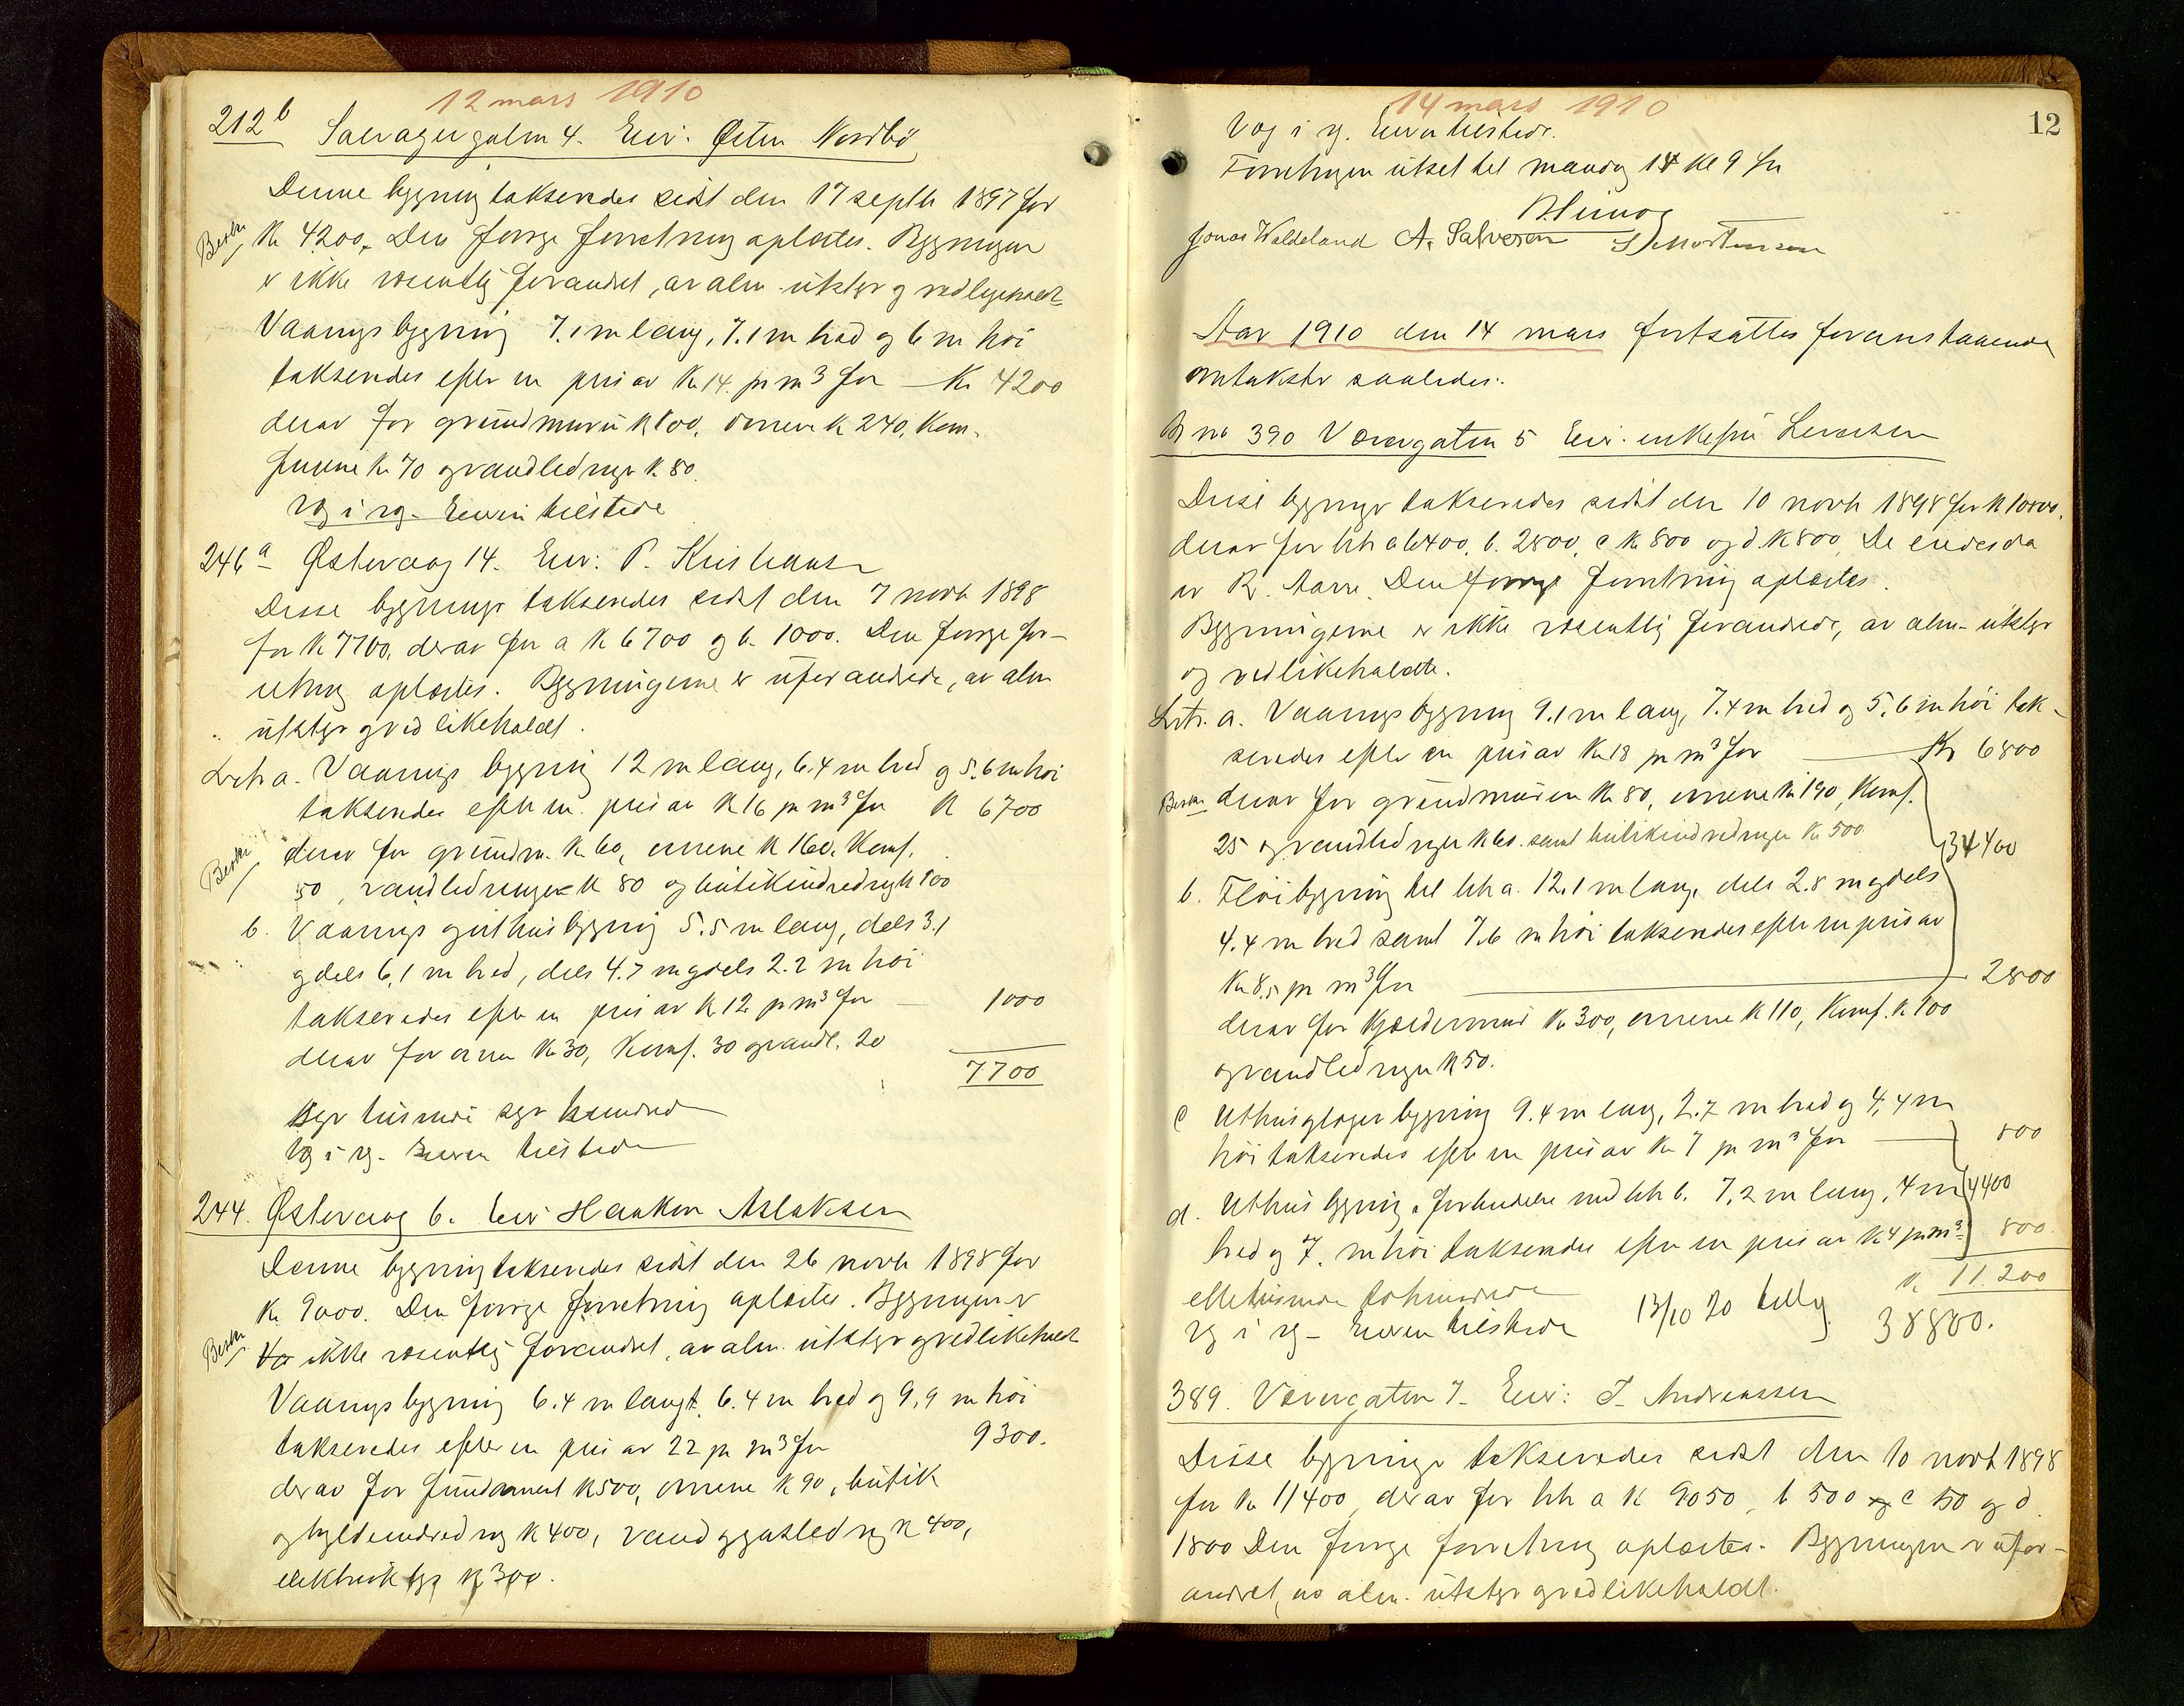 12 mars 1910
212 b Salvagergaten 4. Eier: Østen Nordbø
Denne bygning takseredes sidst den 17 septbr 1897 for
Kr 4200. Den forrige forretning oplæstes. Bygningen
er ikke væsentlig forandret, av alm. utstyr og vedlikeholdt
Vaaningsbygning 7.1 m lang, 7.1 m bred og 6 m høi
takseredes efter en pris av Kr 14. pr m3 for Kr 4200
derav for grundmuren K 100, ovnene K 240, Kom-
furene Kr 70 og vandledninger K. 80
Vg i vg. Eieren tilstede
246 a Østervaag 14. Eier: P. Kristiansen
Disse bygninger takseredes sidst den 7 novb 1898
for K 7700, derav for a K 6700 og b. 1000. Den forrige for-
retning oplæstes. Bygningerne er uforandrede, av alm
utstyr og vedlikeholdt.
Litr a. Vaanings bygning 12 m lang, 6.4 m bred og 5.6 m høi
takseredes efter en pris av K 16 pr m3 for K 6700
derav for grundm. K. 60, ovnene K 160, Komf.
50, vandledninger K 80 og butikindredning K 100
b. Vaanings og uthusbygning 5.5 m lang, dels 3.1
og dels 6,1 m bred, dels 4.7 m og dels 2.2 m høi
takseredes efter en pris av K 12 pr m3 for 1000
derav for ovnen Kr 30, Komf. 30 og vandl. 20
7700
Vg i vg. Eieren tilstede
244. Østervaag 6. Eier Haakon Aslaksen
Denne bygning takseredes sidst den 26 novb 1898 for
K. 9000. Den forrige forretning oplæstes. Bygningen er
ikke væsentlig forandret, av alm. utstyr og vedlikeholdt
Vaaningsbygning 6.4 m langt, 6.4 m bred og 9,9 m høi
takseredes efter en pris av 22 pr m3 for 9300.
derav for fundament K 500, ovnene K 90, butik
og hyldeindredning K 400, vand og gasledning K 400,
elektrisk lys K 300.
14 mars 1910
12
Vg i vg. Eieren tilstede.
Forretningen utsat til mandag 14 Kl 9 fm
Jonas Waldeland A. Salvesen S Mortensen
Aar 1910 den 14 mars fortsattes foranstaaende
omtakster saaledes:
Br no 390 Værvergaten 5 Eier: enkefru Leversen
Disse bygninger takseredes sidst den 10 novb 1898 for K 10800,
derav for litr a 6400, b. 2800, c Kr 800 og d. K 800. De eiedes da
av R. Aarre. Den forrige forretning oplæstes.
Bygningerne er ikke væsentlig forandrede, av alm. utstyr
og vedlikeholdte.
Litr. a. Vaaningsbygning 9.1 m lang, 7.4 m bred og 5,6 m høi tak-
seredes efter en pris av Kr 18 pr m3 for Kr 6800
derav for grundmuren Kr 80, ovnene Kr 190, Komf.
25 og vandledninger K 60. samt butikindredninger Kr 500
34400
b. Fløibygning til litr a. 12.1 m lang, dels 2.8 m og dels
4.4 m bred samt 7.6 m høi takseredes efter en pris av
Kr 8.5 pr m3 for 2800
derav for Kjældermur Kr 300, ovnene K 110, Komf. K 100
og vandledninger K 50.
c Uthus og lagerbygning 9.4 m lang, 2.7 m bred og 4,4 m
høi takseredes efter en pris av Kr 7 pr m3 for 800
d. Uthusbygning i forbindelse med litr b. 7,2 m lang, 4 m 4400
bred og 7. m høi takseredes efter en pris av Kr 4 pr m3 800.
K. 11.200
Vg i vg. Eieren tilstede 13/10 20 38880.
389. Værvergaten 7. Eier: J. Andreassen
Disse bygninger takseredes sidst den 10 novb 1898
for Kr 11400, derav for litr a K 9050, b 500 og c 50 og d.
1800 Den forrige forretning oplæstes. Bygningen er ufor-
andret, av alm. utstyr og vedlikeholdt.